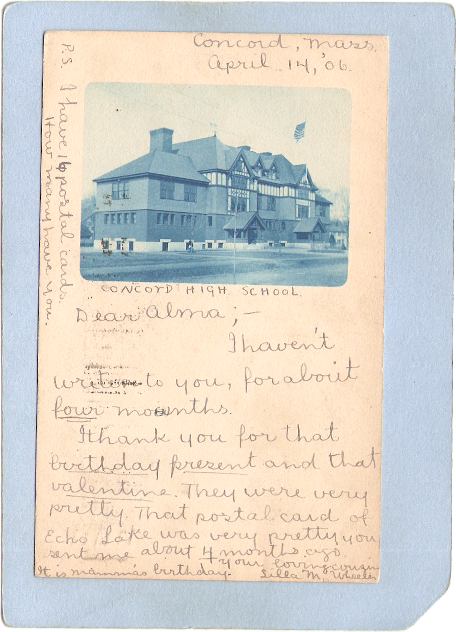 Concord, Mass.
April 14, '06.
CONCORD HIGH SCHOOL.
Dear Alma;-
I haven't
write to you, for about
four moonths.
I thank you for that
birthday present and that
valentine. They were very
pretty. That postal card of
Echo Lake was very pretty you
sent me about 4 months ago.
Your loving cousin
It is mamma's birthday. Lilla M. Wheeler
P.S. I have 16 postal cards.
How many have you.